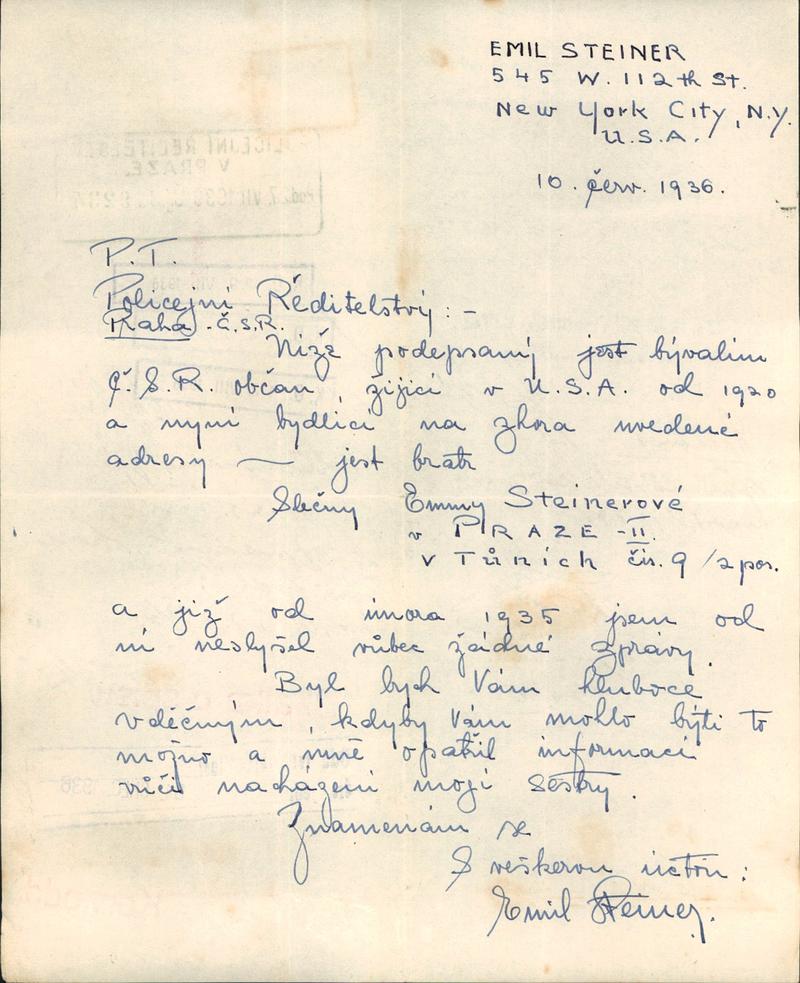 EMIL STEINER
545 W. 112th St.
New York City, N.Y.
U.S.A.
10. červ. 1936.
P.T.
Policejní Ředitelství : -
Praha - Č.S.R.
Níže podepsaný jest bývalim
Č.S.R. občan, žijící v U.S.A. od 1920
a nyní bydlící na zhora uvedené
adresy — jest bratr
Slečny Emmy Steinerové
v PRAZE - II.
v Tůních čis. 9 / 2 pos.
a již od února 1935 jsem od
ní neslyšel vůbec žádné zprávy.
Byl bych Vám hluboce
vděčným, kdyby Vám mohlo býti to
možno a mně opatřil informaci
vůči nacházení moji sestry.
Znamenám se
S veškerou úctou :
Emil Steiner.
POLICEJNÍ ŘEDITELSTVÍ
V PRAZE.